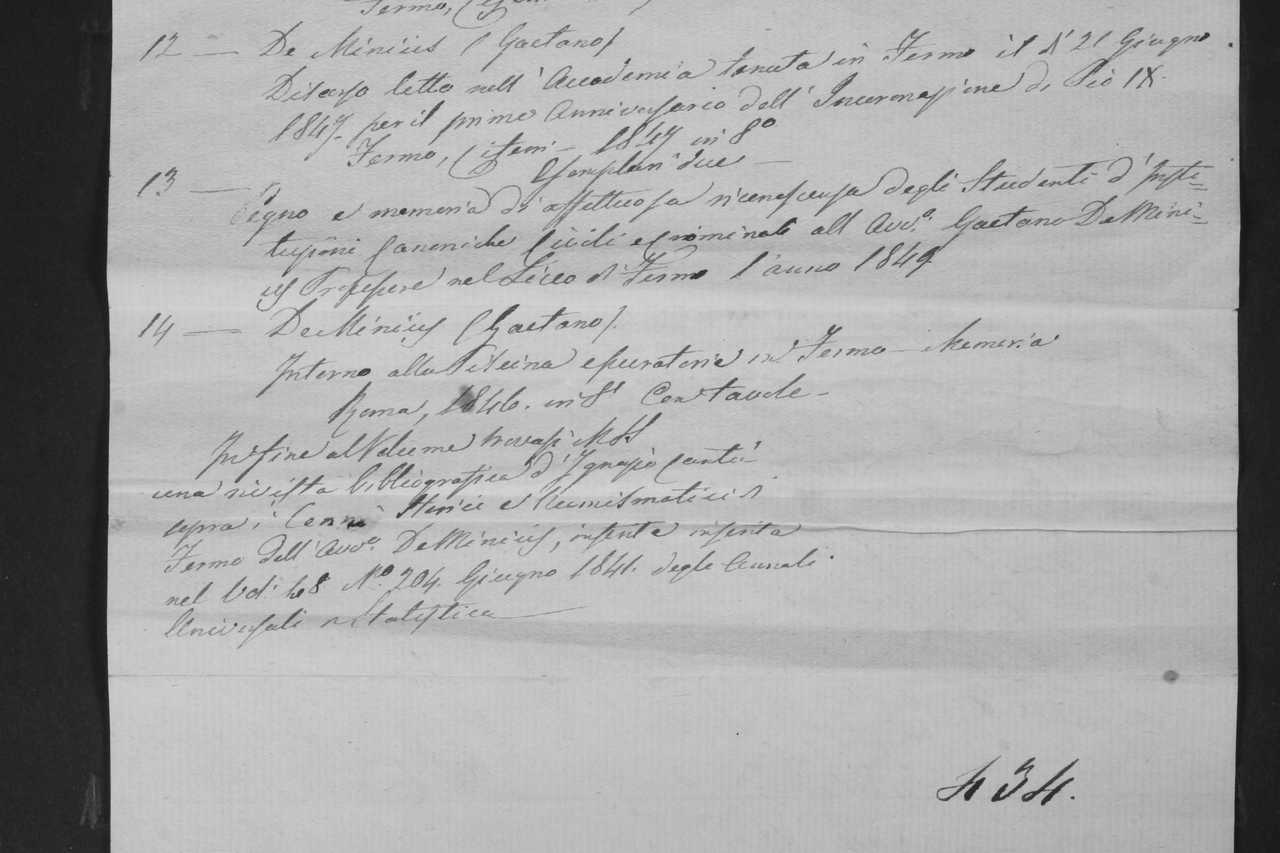 Fermo,
12 — De Minicis (Gaetano)
Discorso letto nell'Accademia tenuta in Fermo il dì 21 Giugno
1847 per il primo Anniversario dell'Incoronazione di Pio IX.
Fermo, Ciferri — 1847 in 8º
Esemplari due —
13 — Segno e memoria di affettuosa riconoscenza degli Studenti d'Insti=
tuzioni Canoniche Civili e Criminali all Avv.º Gaetano De Mini=
cis Professore nel Liceo di Fermo l'anno 1849
14 — De Minicis (Gaetano).
Intorno alla Piscina epuratoria in Fermo — Memoria
Roma, 1846. in 8º Con tavole —
In fine al Volume trovasi MSS
una rivista bibliografica d'Ignazio Cantù
sopra i Cenni Storici e Numismatici di
Fermo dell'Avv.º De Minicis, inserita
nel Vol. 68 Nº 204. Giugno 1841. degli Annali
Universali di Statistica —
434.